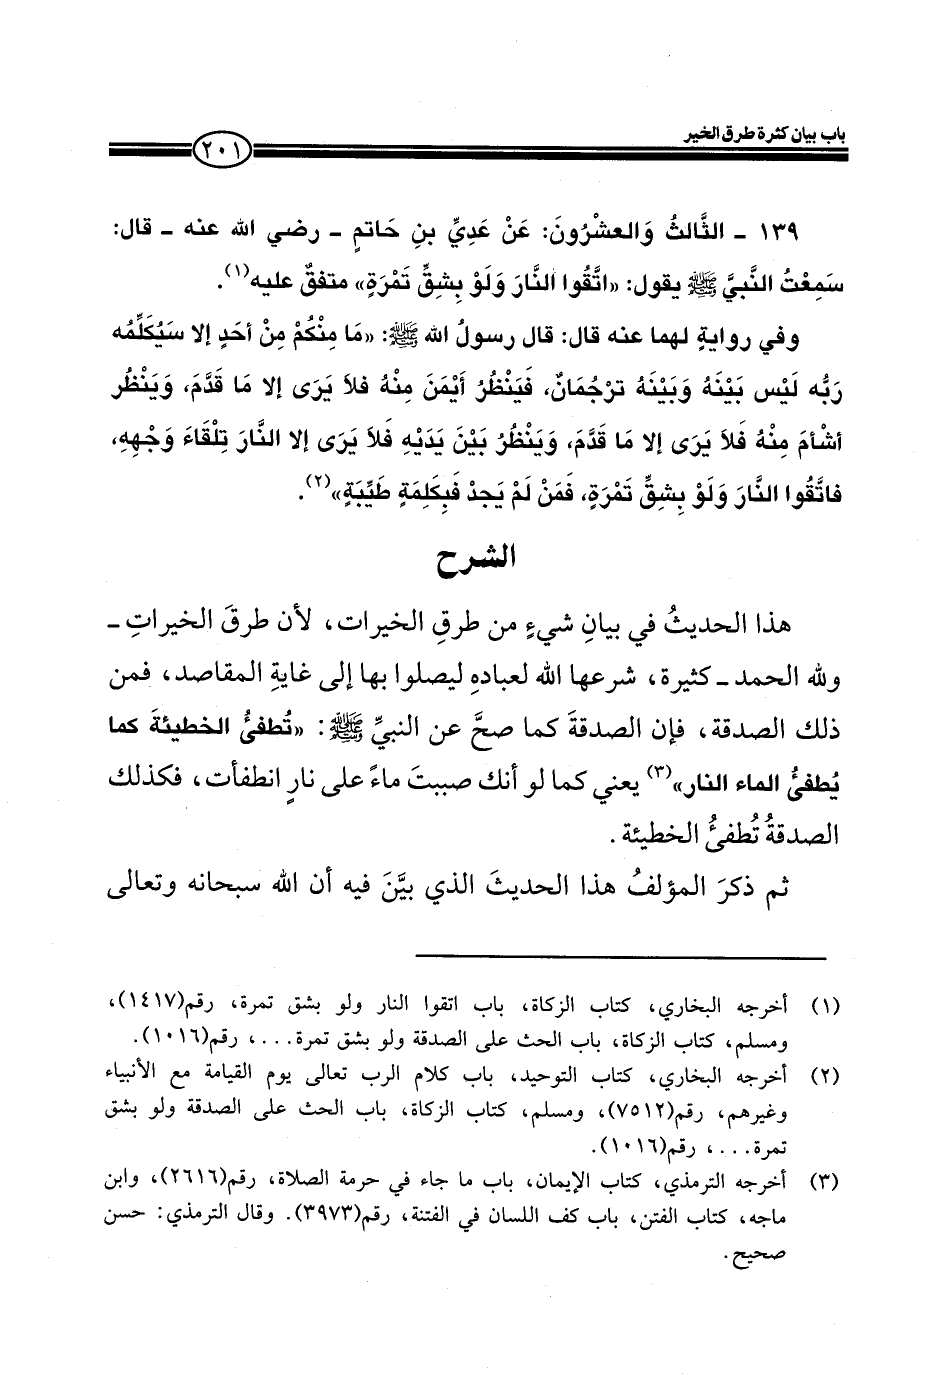 باب بيان كثرة طرق الخير
٢٠١
١٣٩ ـ الثَّالثُ وَالعشْرُونَ: عَنْ عَدِيِّ بنِ حَاتمٍ ـ رضي الله عنه ـ قال:
سَمِعْتُ النَّبيَّ ﷺ يقول: «اتَّقُوا النَّارَ وَلَوْ بِشقِّ تَمْرَةٍ» متفقٌ عليه(١).
وفي روايةٍ لهما عنه قال: قال رسولُ الله ﷺ: «مَا مِنْكُمْ مِنْ أحَدٍ إلا سَيُكَلِّمُه
رَبُّه لَيْس بَيْنَهُ وَبَيْنَهُ ترْجُمَانٌ، فَيَنْظُرُ أيْمَنَ مِنْهُ فلاَ يَرَى إلا مَا قَدَّمَ، وَيَنْظُر
أشْأمَ مِنْهُ فَلاَ يَرَى إلا مَا قدَّمَ، وَيَنْظُرُ بَيْنَ يَدَيْهِ فَلاَ يَرَى إلا النَّارَ تِلْقَاءَ وَجْهِهِ،
فاتَّقُوا النَّارَ وَلَوْ بِشقِّ تَمْرَةٍ، فَمَنْ لَمْ يَجدْ فَبِكَلِمَةٍ طَيِّبَةٍ»(٢).
الشرح
هذا الحديثُ في بيانِ شيءٍ من طرقِ الخيرات، لأن طرقَ الخيراتِ ـ
ولله الحمد ـ كثيرة، شرعها الله لعبادهِ ليصلوا بها إلى غايةِ المقاصد، فمن
ذلك الصدقة، فإن الصدقةَ كما صحَّ عن النبيِّ ﷺ: «تُطفئُ الخطيئةَ كما
يُطفئُ الماء النار»(٣) يعني كما لو أنك صببتَ ماءً على نارٍ انطفأت، فكذلك
الصدقةُ تُطفئُ الخطيئة.
ثم ذكرَ المؤلفُ هذا الحديثَ الذي بيَّنَ فيه أن الله سبحانه وتعالى
(١) أخرجه البخاري، كتاب الزكاة، باب اتقوا النار ولو بشق تمرة، رقم(١٤١٧)،
ومسلم، كتاب الزكاة، باب الحث على الصدقة ولو بشق تمرة...، رقم(١٠١٦).
(٢) أخرجه البخاري، كتاب التوحيد، باب كلام الرب تعالى يوم القيامة مع الأنبياء
وغيرهم، رقم(٧٥١٢)، ومسلم، كتاب الزكاة، باب الحث على الصدقة ولو بشق
تمرة...، رقم(١٠١٦).
(٣) أخرجه الترمذي، كتاب الإيمان، باب ما جاء في حرمة الصلاة، رقم(٢٦١٦)، وابن
ماجه، كتاب الفتن، باب كف اللسان في الفتنة، رقم(٣٩٧٣). وقال الترمذي: حسن
صحيح.